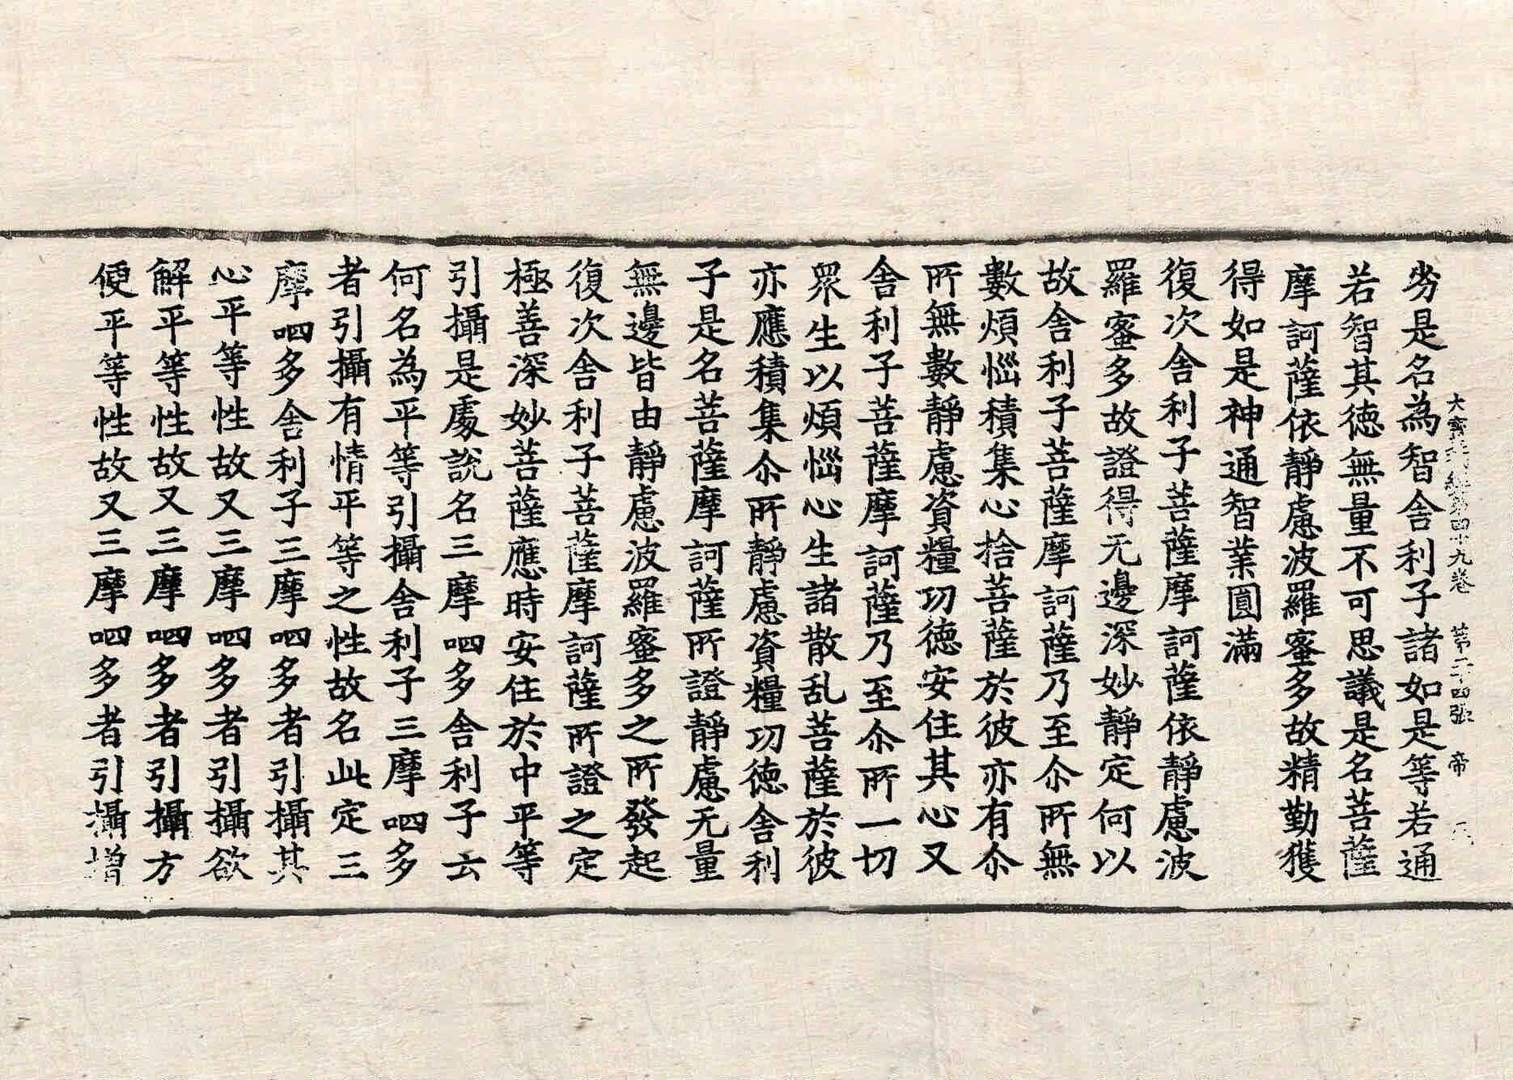 大寶積經第四十九卷 第二十四張 帝
劣是名為智舍利子諸如是等若通
若智其徳無量不可思議是名菩薩
摩訶薩依靜慮波羅蜜多故精勤獲
得如是神通智業圓滿
復次舍利子菩薩摩訶薩依靜慮波
羅蜜多故證得无邊深妙靜定何以
故舍利子菩薩摩訶薩乃至尒所無
數煩惱積集心捨菩薩於彼亦有尒
所無數靜慮資糧功徳安住其心又
舍利子菩薩摩訶薩乃至尒所一切
眾生以煩惱心生諸散乱菩薩於彼
亦應積集尒所靜慮資糧功徳舍利
子是名菩薩摩訶薩所證靜慮无量
無邊皆由靜慮波羅蜜多之所發起
復次舍利子菩薩摩訶薩所證之定
極善深妙菩薩應時安住於中平等
引攝是處說名三摩呬多舍利子云
何名為平等引攝舍利子三摩呬多
者引攝有情平等之性故名此定三
摩呬多舍利子三摩呬多者引攝其
心平等性故又三摩呬多者引攝欲
解平等性故又三摩呬多者引攝方
便平等性故又三摩呬多者引攝增